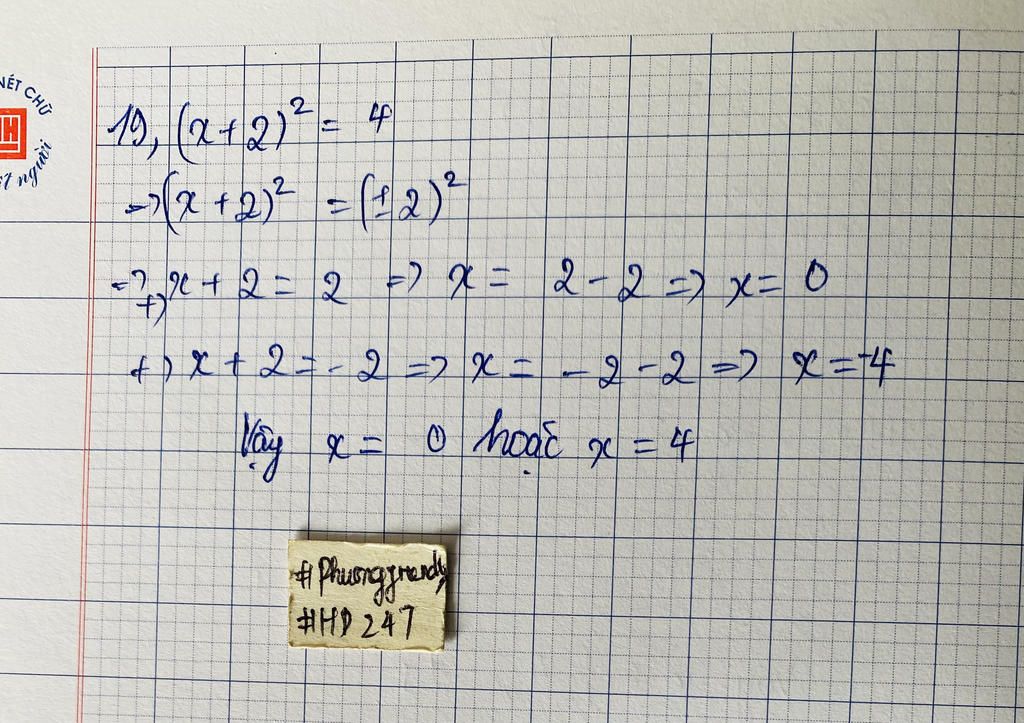 NÉT CHỮ
H
người
19, (x+2)² = 4
=> (x+2)² = (±2)²
=> +) x + 2 = 2 => x = 2 - 2 => x = 0
+) x + 2 = - 2 => x = - 2 - 2 => x = -4
Vậy x = 0 hoặc x = 4
#HD 247